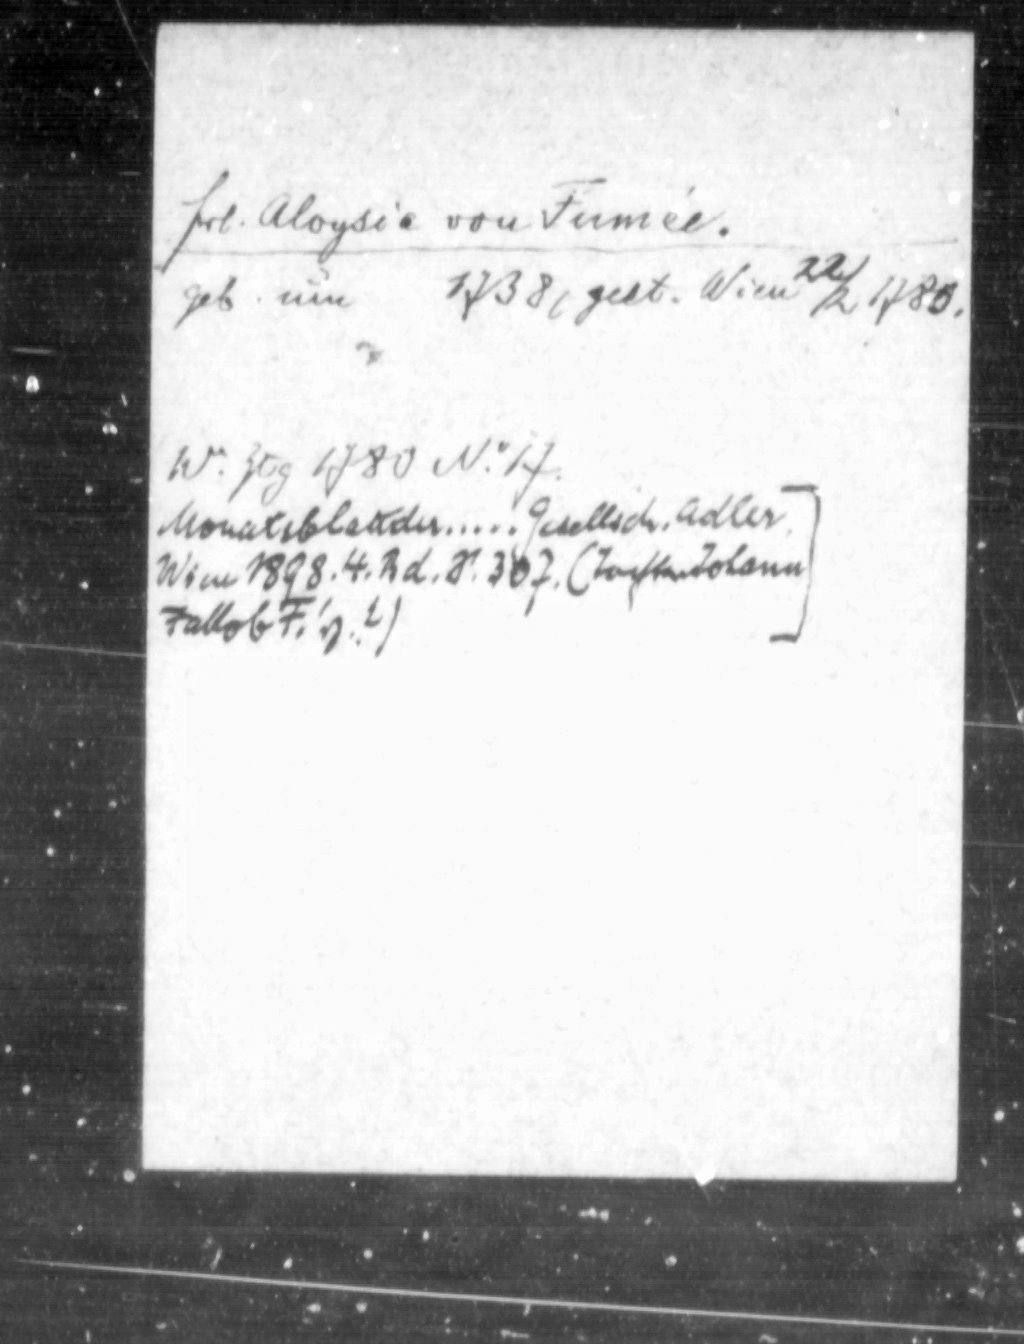 frl. Aloysia von Fumée.
geb. um 1738, gest. Wien 22/2 1780.
Wr. Ztg 1780 No. 17.
Monatsblatt der..... Gesellsch. Adler,
Wien 1898. 4. Bd. S. 307. (Tochter Johann
Jakob F.'s.?)